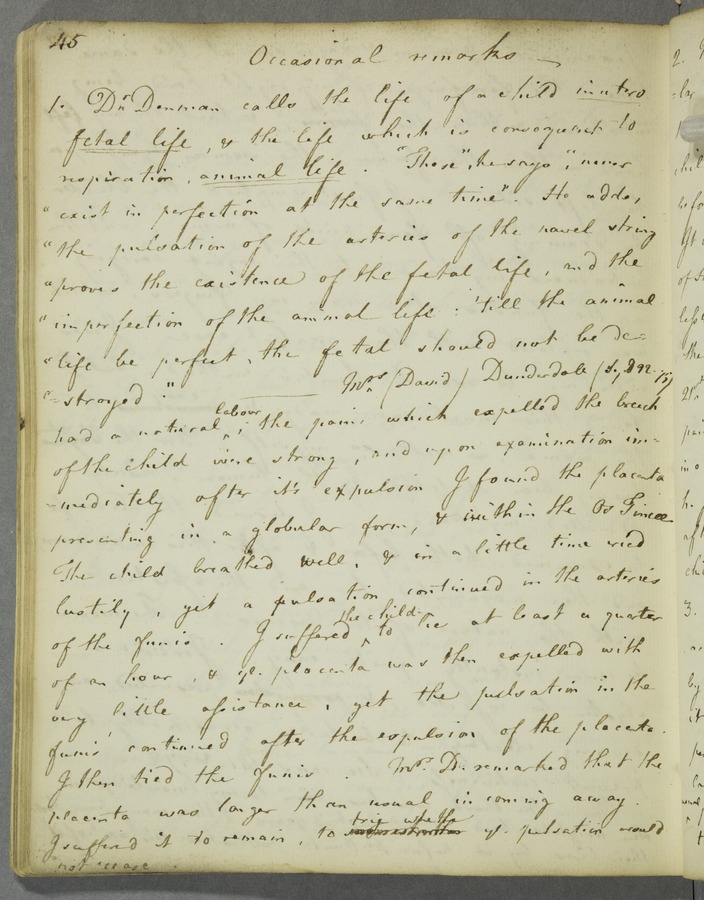 45
Occasional remarks —
1. Dr. Denman calls the life of a child in utero
fetal life, & the life which is consequent to
respiration, animal life. "These", he says, "never
"exist in perfection at the same time". He adds,
"the pulsation of the arteries of the navel string
"proves the existence of the fetal life, and the
"imperfection of the animal life: 'till the animal
"life be perfect, the fetal should not be de=
"=stroyed." —— Mrs. (David) Dunderdale
had a natural labour; the pains which expelled the breech
of the child were strong, and upon examination im=
=mediately after it's expulsion I found the placenta
presenting in a globular form, & within the Os Tincæ
The child breathed well, & in a little time cried
lustily, yet a pulsation continued in the arteries
of the funis. I suffered the child to lie at least a quarter
of an hour, & ye. placenta was then expelled with
very little assistance, yet the pulsation in the
funis continued after the expulsion of the placenta.
I then tied the funis. Mrs. D. remarked that the
placenta was longer than usual in coming away.
I suffered it to remain, to try whether ye. pulsation would
not cease.